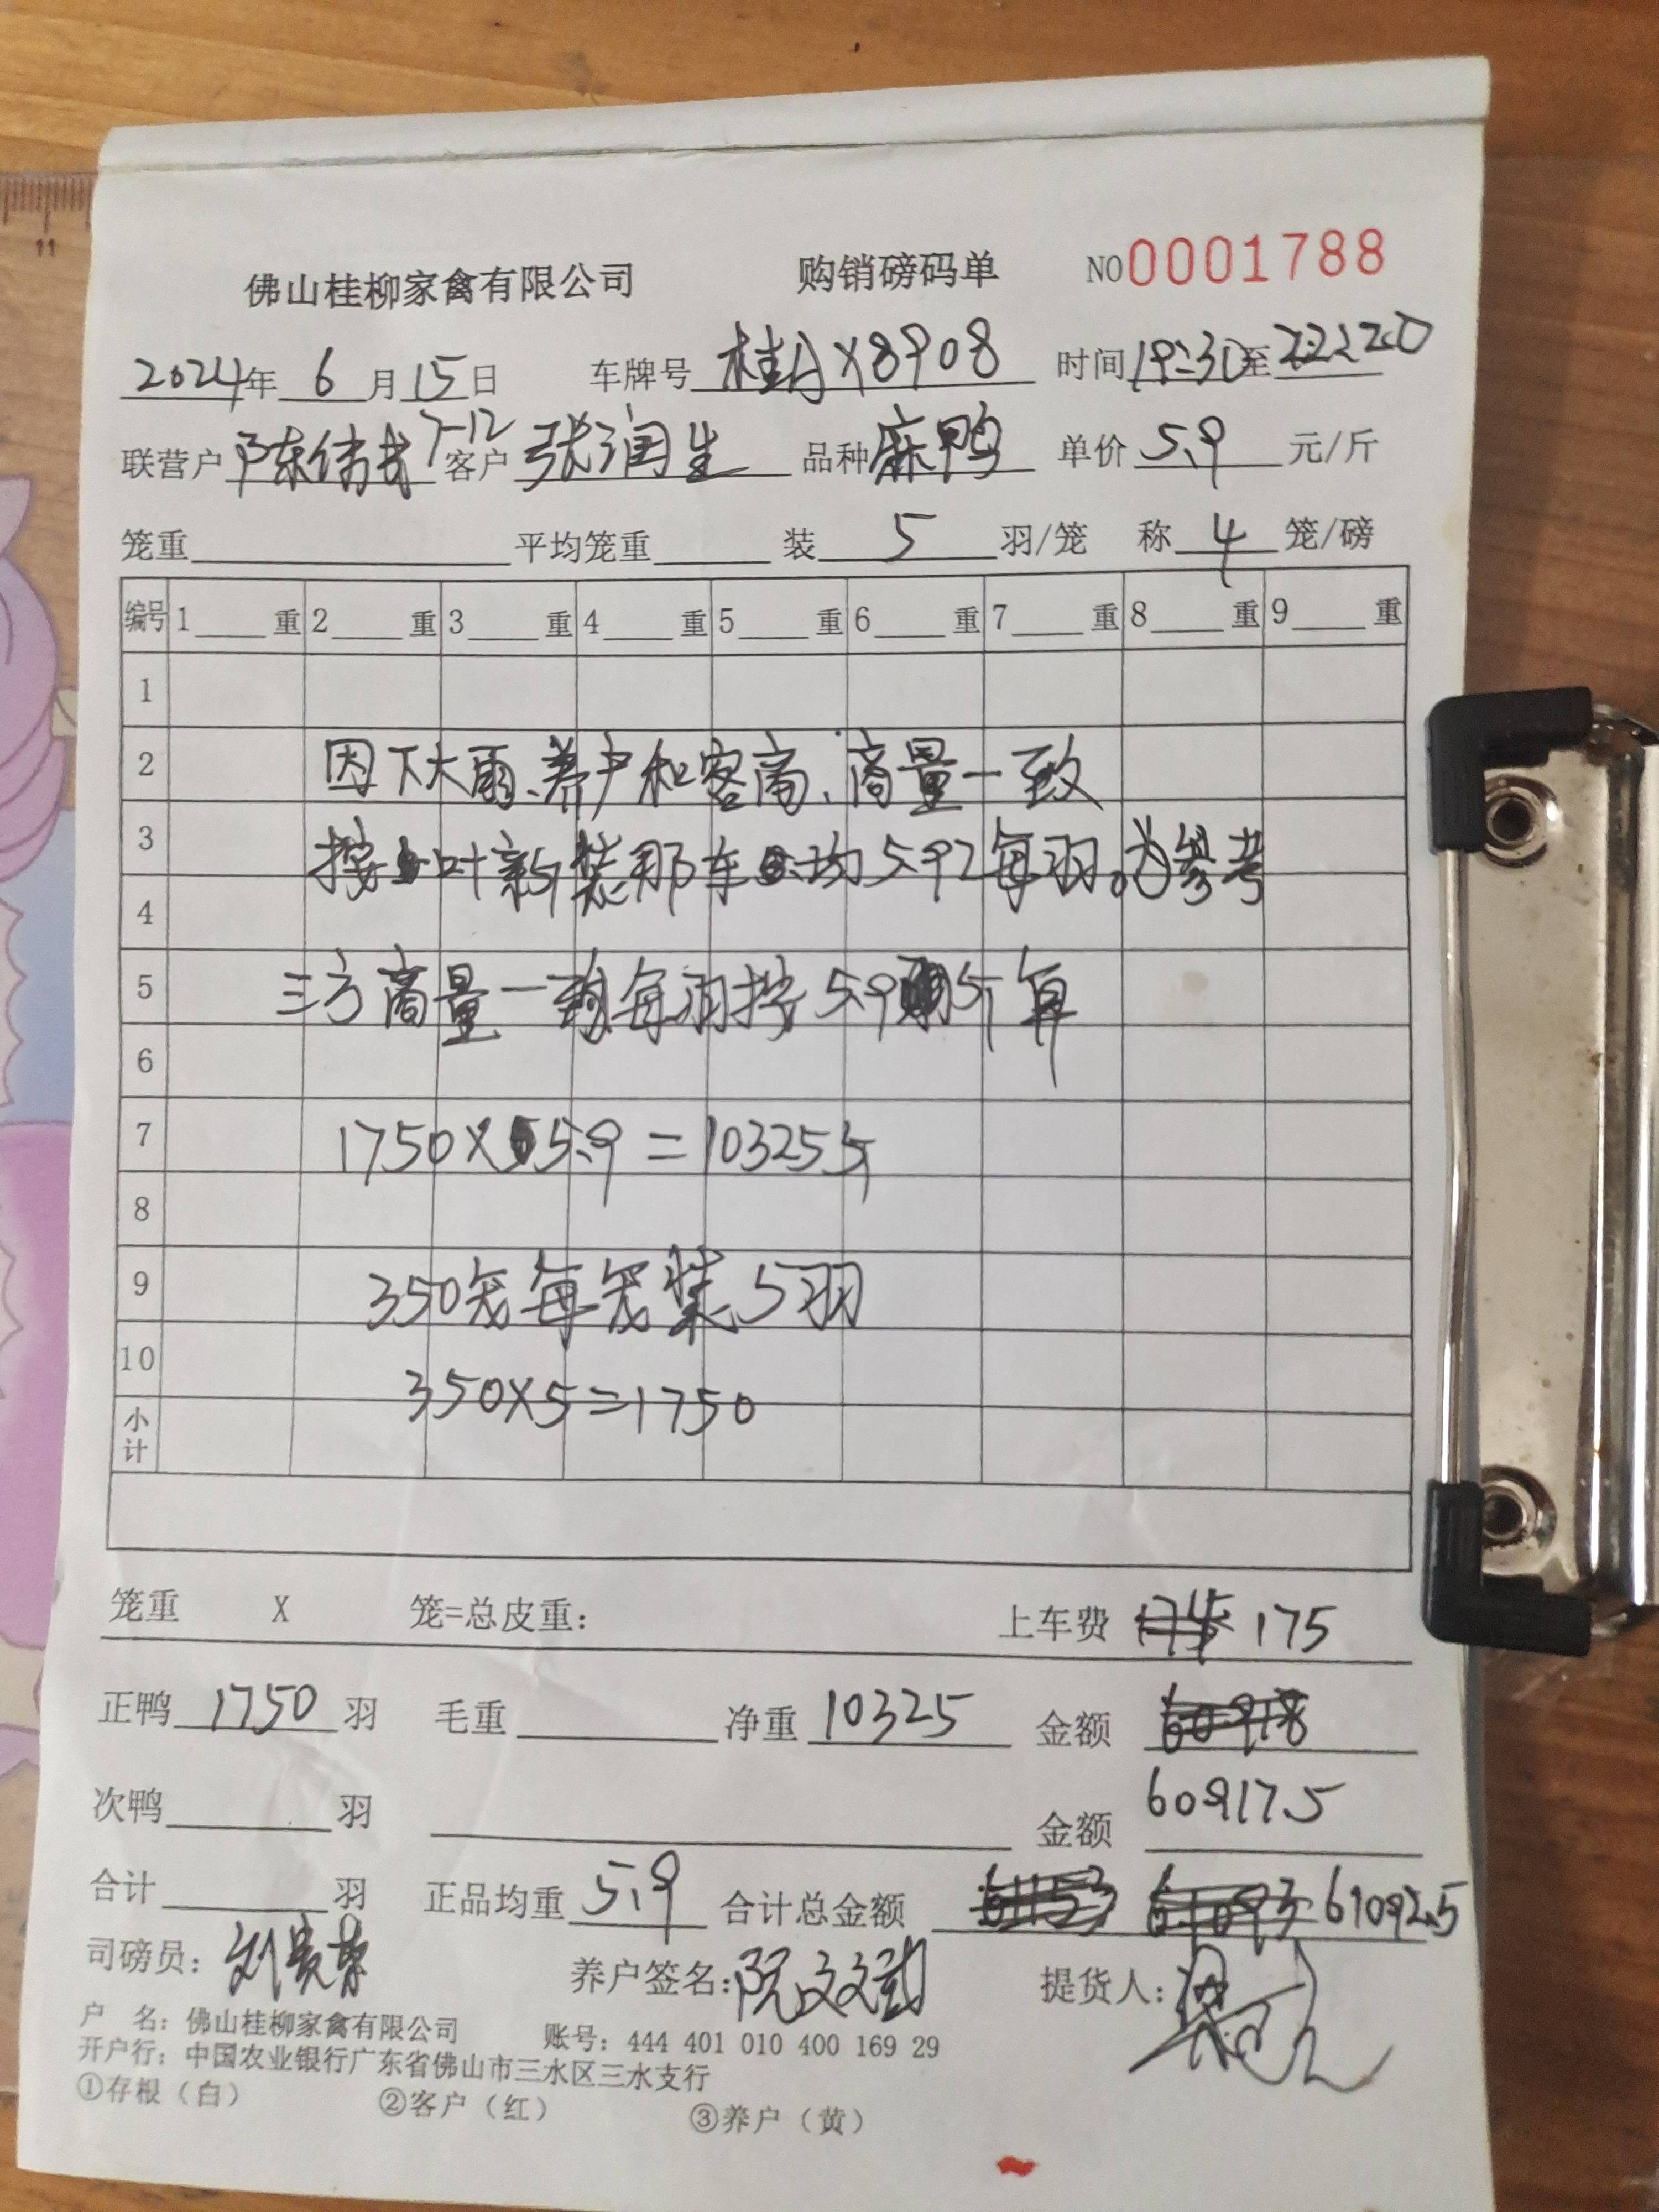 佛山桂柳家禽有限公司 购销磅码单 NO0001788
2024年 6 月 15 日 车牌号 桂 X8908 时间 19:30 至 22:20
联营户 陈伟 7-12 客户 张润生 品种 麻鸭 单价 5.9 元/斤
笼重 平均笼重 装 5 羽/笼 称 4 笼/磅
编号 1 重 2 重 3 重 4 重 5 重 6 重 7 重 8 重 9 重
1
2 因下大雨、养户和客商、商量一致
3 按 叶新装那车 均5.92每羽。为参考
4
5 三方商量一致每羽按5.9斤算
6
7 1750X5.9=10325斤
8
9 350笼每笼装5羽
10 350X5=1750
小计
笼重 X 笼=总皮重: 上车费 175
正鸭 1750 羽 毛重 净重 10325 金额
次鸭 羽 金额 60917.5
合计 羽 正品均重 5.9 合计总金额 61092.5
司磅员: 刘 养户签名: 阮文 提货人:
户 名: 佛山桂柳家禽有限公司 账号: 444 401 010 400 169 29
开户行: 中国农业银行广东省佛山市三水区三水支行
①存根（白） ②客户（红） ③养户（黄）